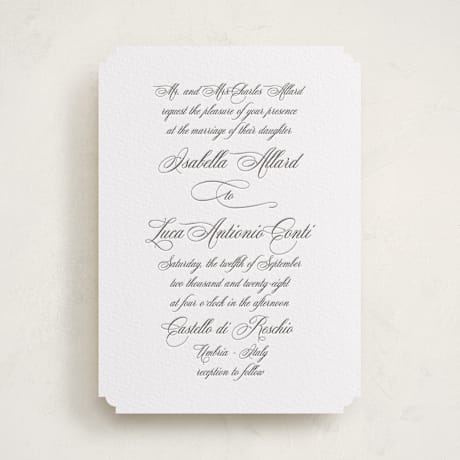 Mr. and Mrs Charles Allard
request the pleasure of your presence
at the marriage of their daughter
Isabella Allard
to
Luca Antionio Conti
Saturday, the twelfth of September
two thousand and twenty-eight
at four o'clock in the afternoon
Castello di Reschio
Umbria - Italy
reception to follow